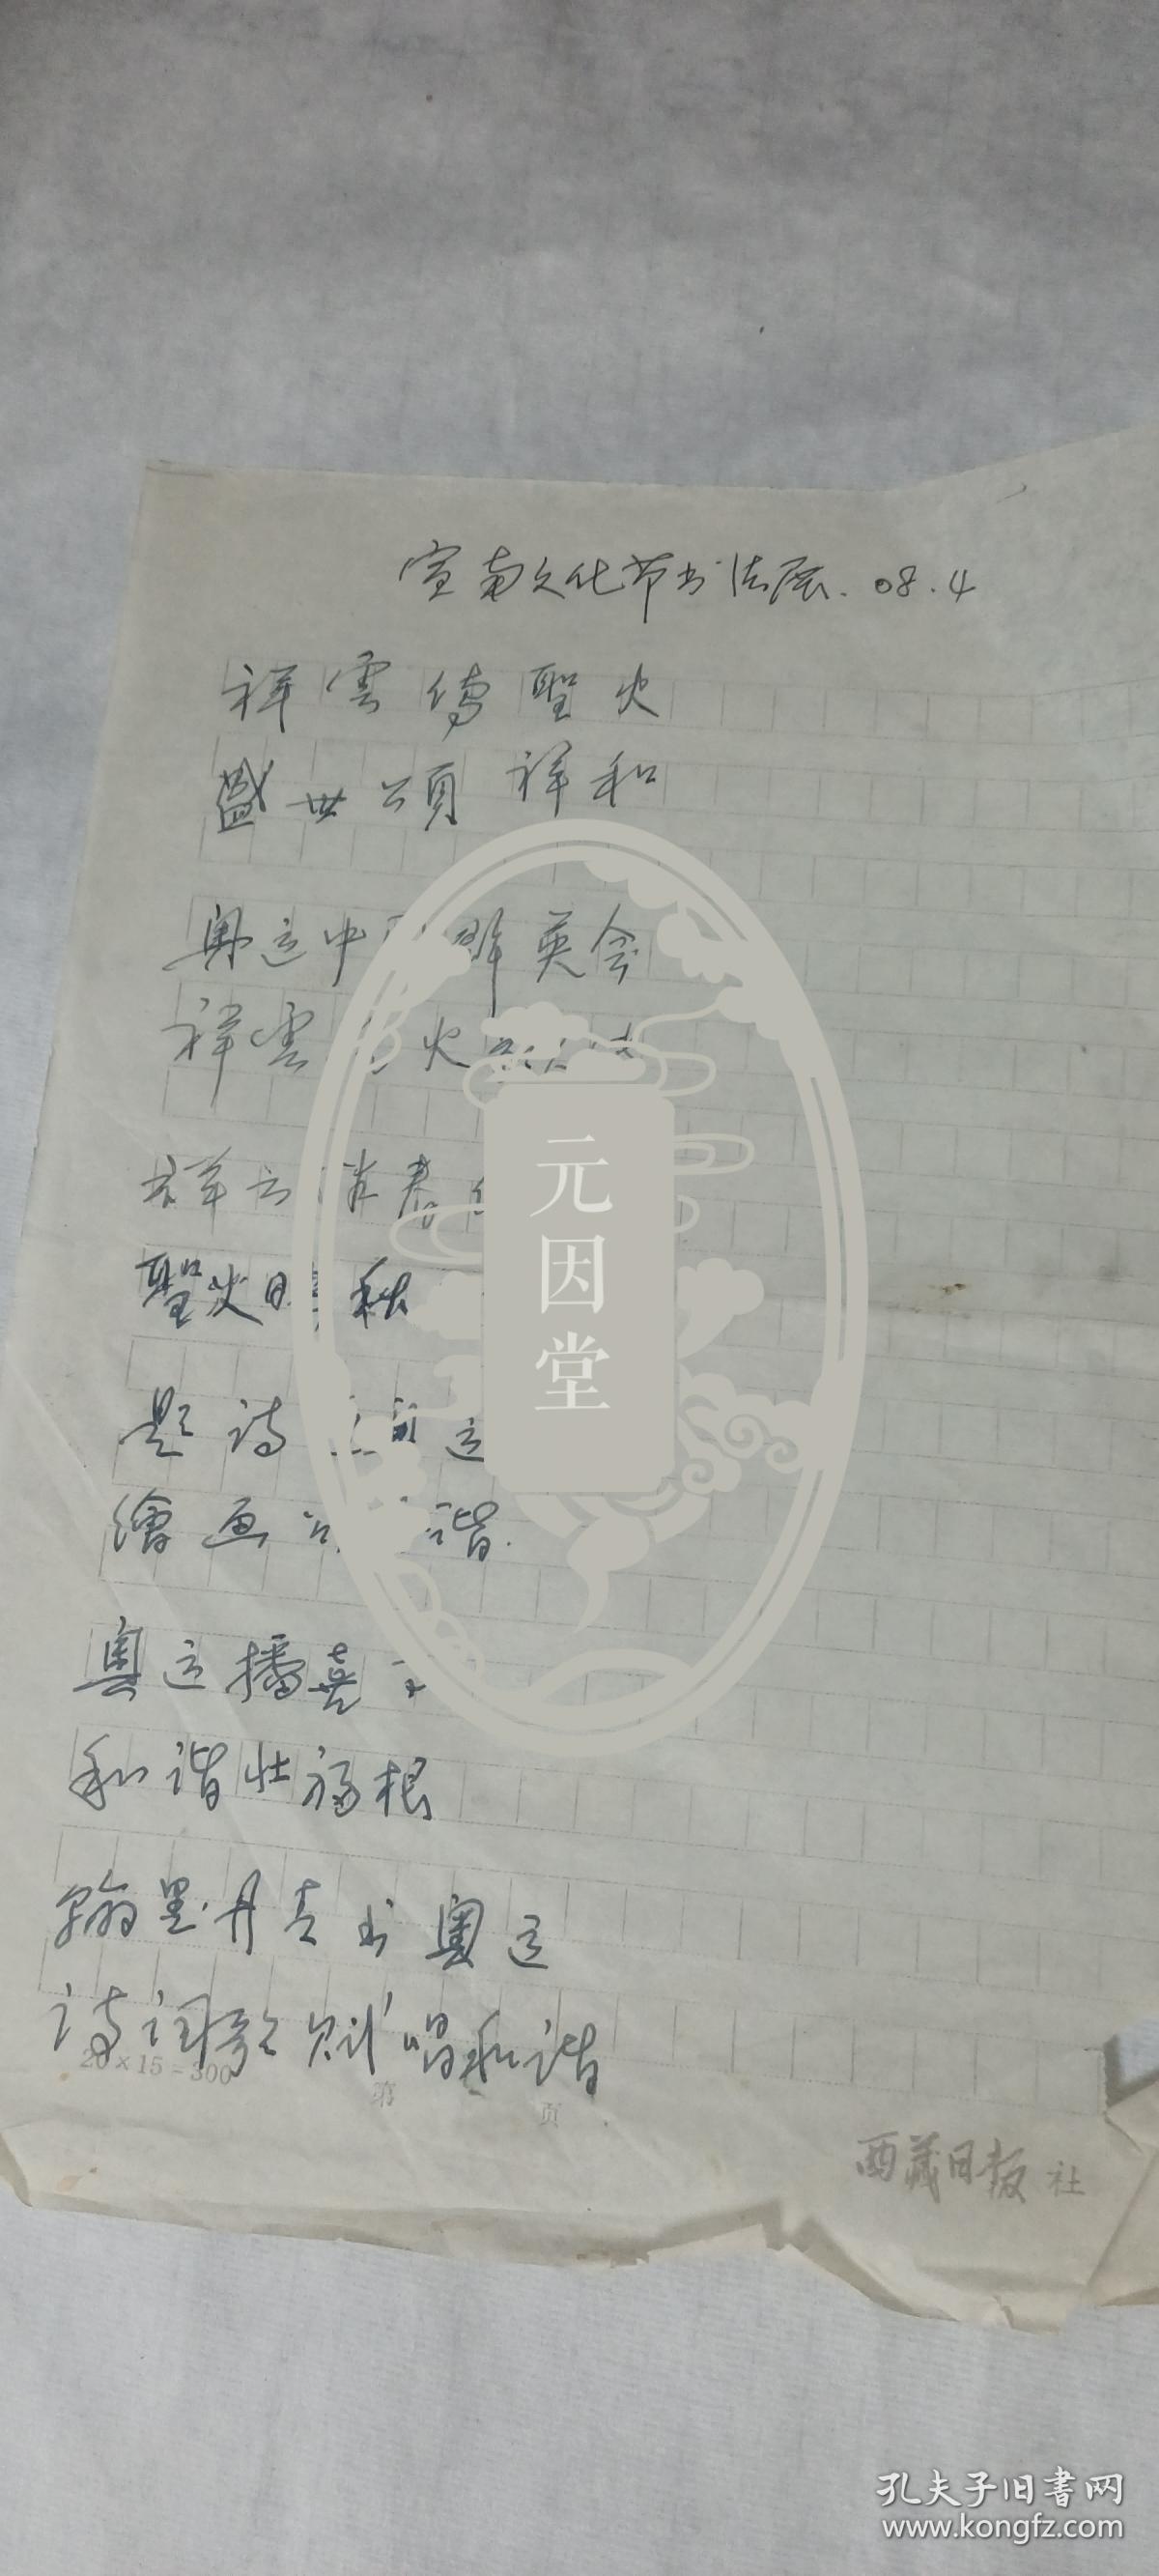 宣南文化节书法展. 08.4
祥雲傳聖火
盛世頌祥和
奥运中 群英会
祥雲 火
祥云 春
聖火 秋
题诗 运
繪画 谐.
奥运播喜
和谐壮福根
翰墨丹青书奥运
诗词歌赋唱和谐
20×15-300
第 页
西藏日报社
元因堂
孔夫子旧書网
www.kongfz.com